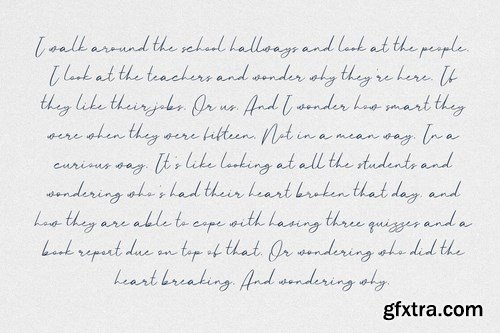 I walk around the school hallways and look at the people.
I look at the teachers and wonder why they're here. If
they like their jobs. Or us. And I wonder how smart they
were when they were fifteen. Not in a mean way. In a
curious way. It's like looking at all the students and
wondering who's had their heart broken that day, and
how they are able to cope with having three quizzes and a
book report due on top of that. Or wondering who did the
heart breaking. And wondering why.
gfxtra.com